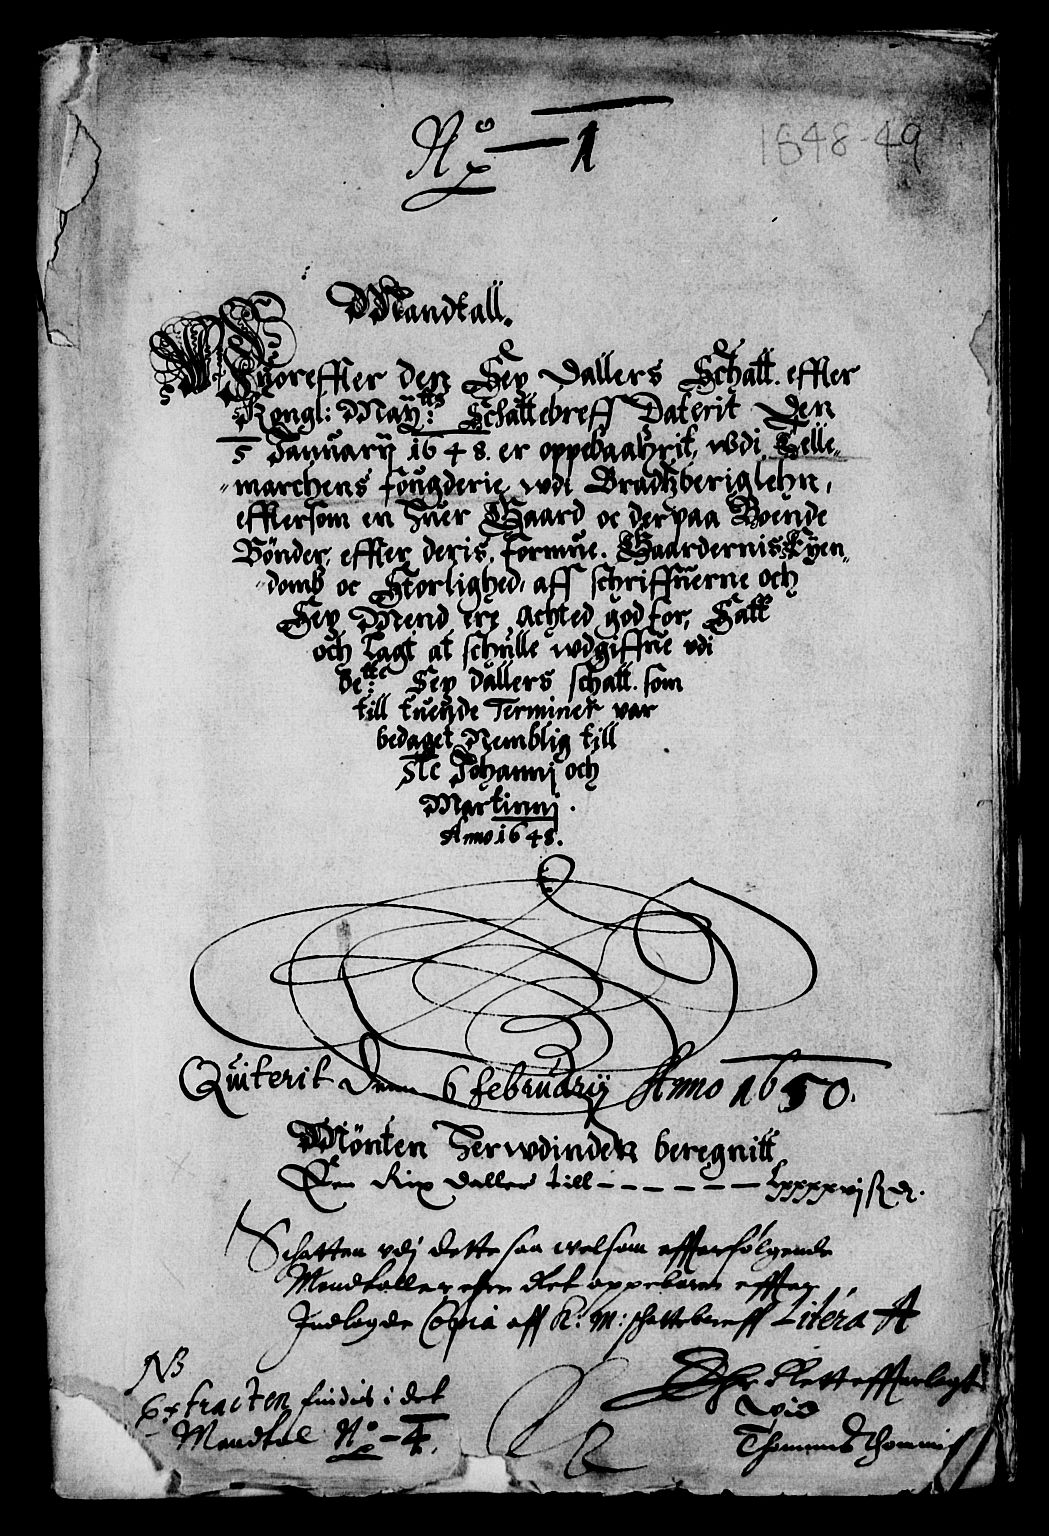 No 1
1648-49
Mandtall.
Huoreffter den Sex Dallers Schatt. effter
Kongl: Maÿtts: Schattebreff Daterit den
5 Januarij 1648. er oppebaahrit, wdi Telle-
marchens fougderie wdi Bradtzberiglehn,
efftersom en huer Gaard oc der paa Boende
Bönder, effter deris, formue. Gaardernis Eÿen-
domb oc Storlighed, aff schriffuerne och
Sex Mend ere achted god for, Satt
och Lagt at schulle wdgiffue vdi
dette Sex dallers schatt. som
till tuende Terminer var
bedaget Nemblig till
Ste Johannj och
Martinnj.
Anno 1648.
Quiterit den 6 februarij Anno 1650.
Mönten herwdinden beregnitt
Een Rix daller till
Schatten vdj dette saa welsom efferfølgende
Mandtaller oppebaren effter
Indlagde Copia aff K: M: schattebreff Litera A
NB
Extracten findis i det
Mandtal No - 4.
wid
Thommes Thommis